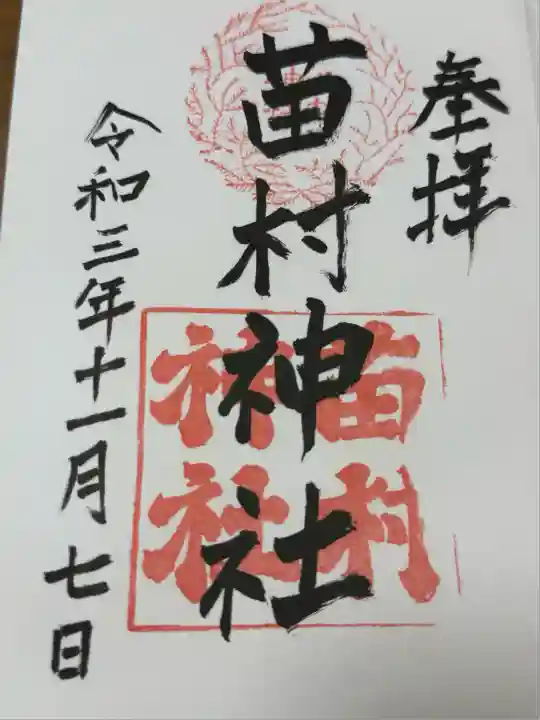 奉拝
苗村神社
令和三年十一月七日
苗村
神社